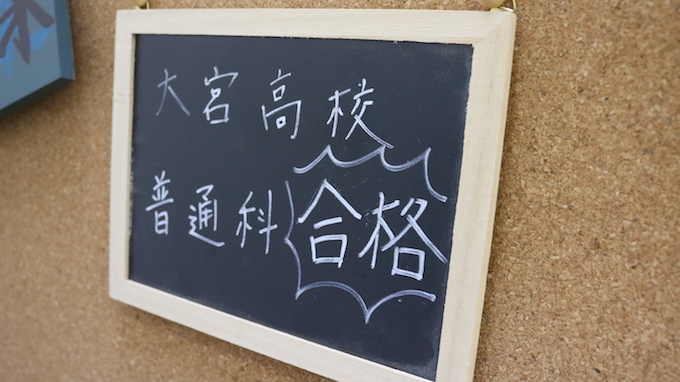 大宮高校
普通科 合格